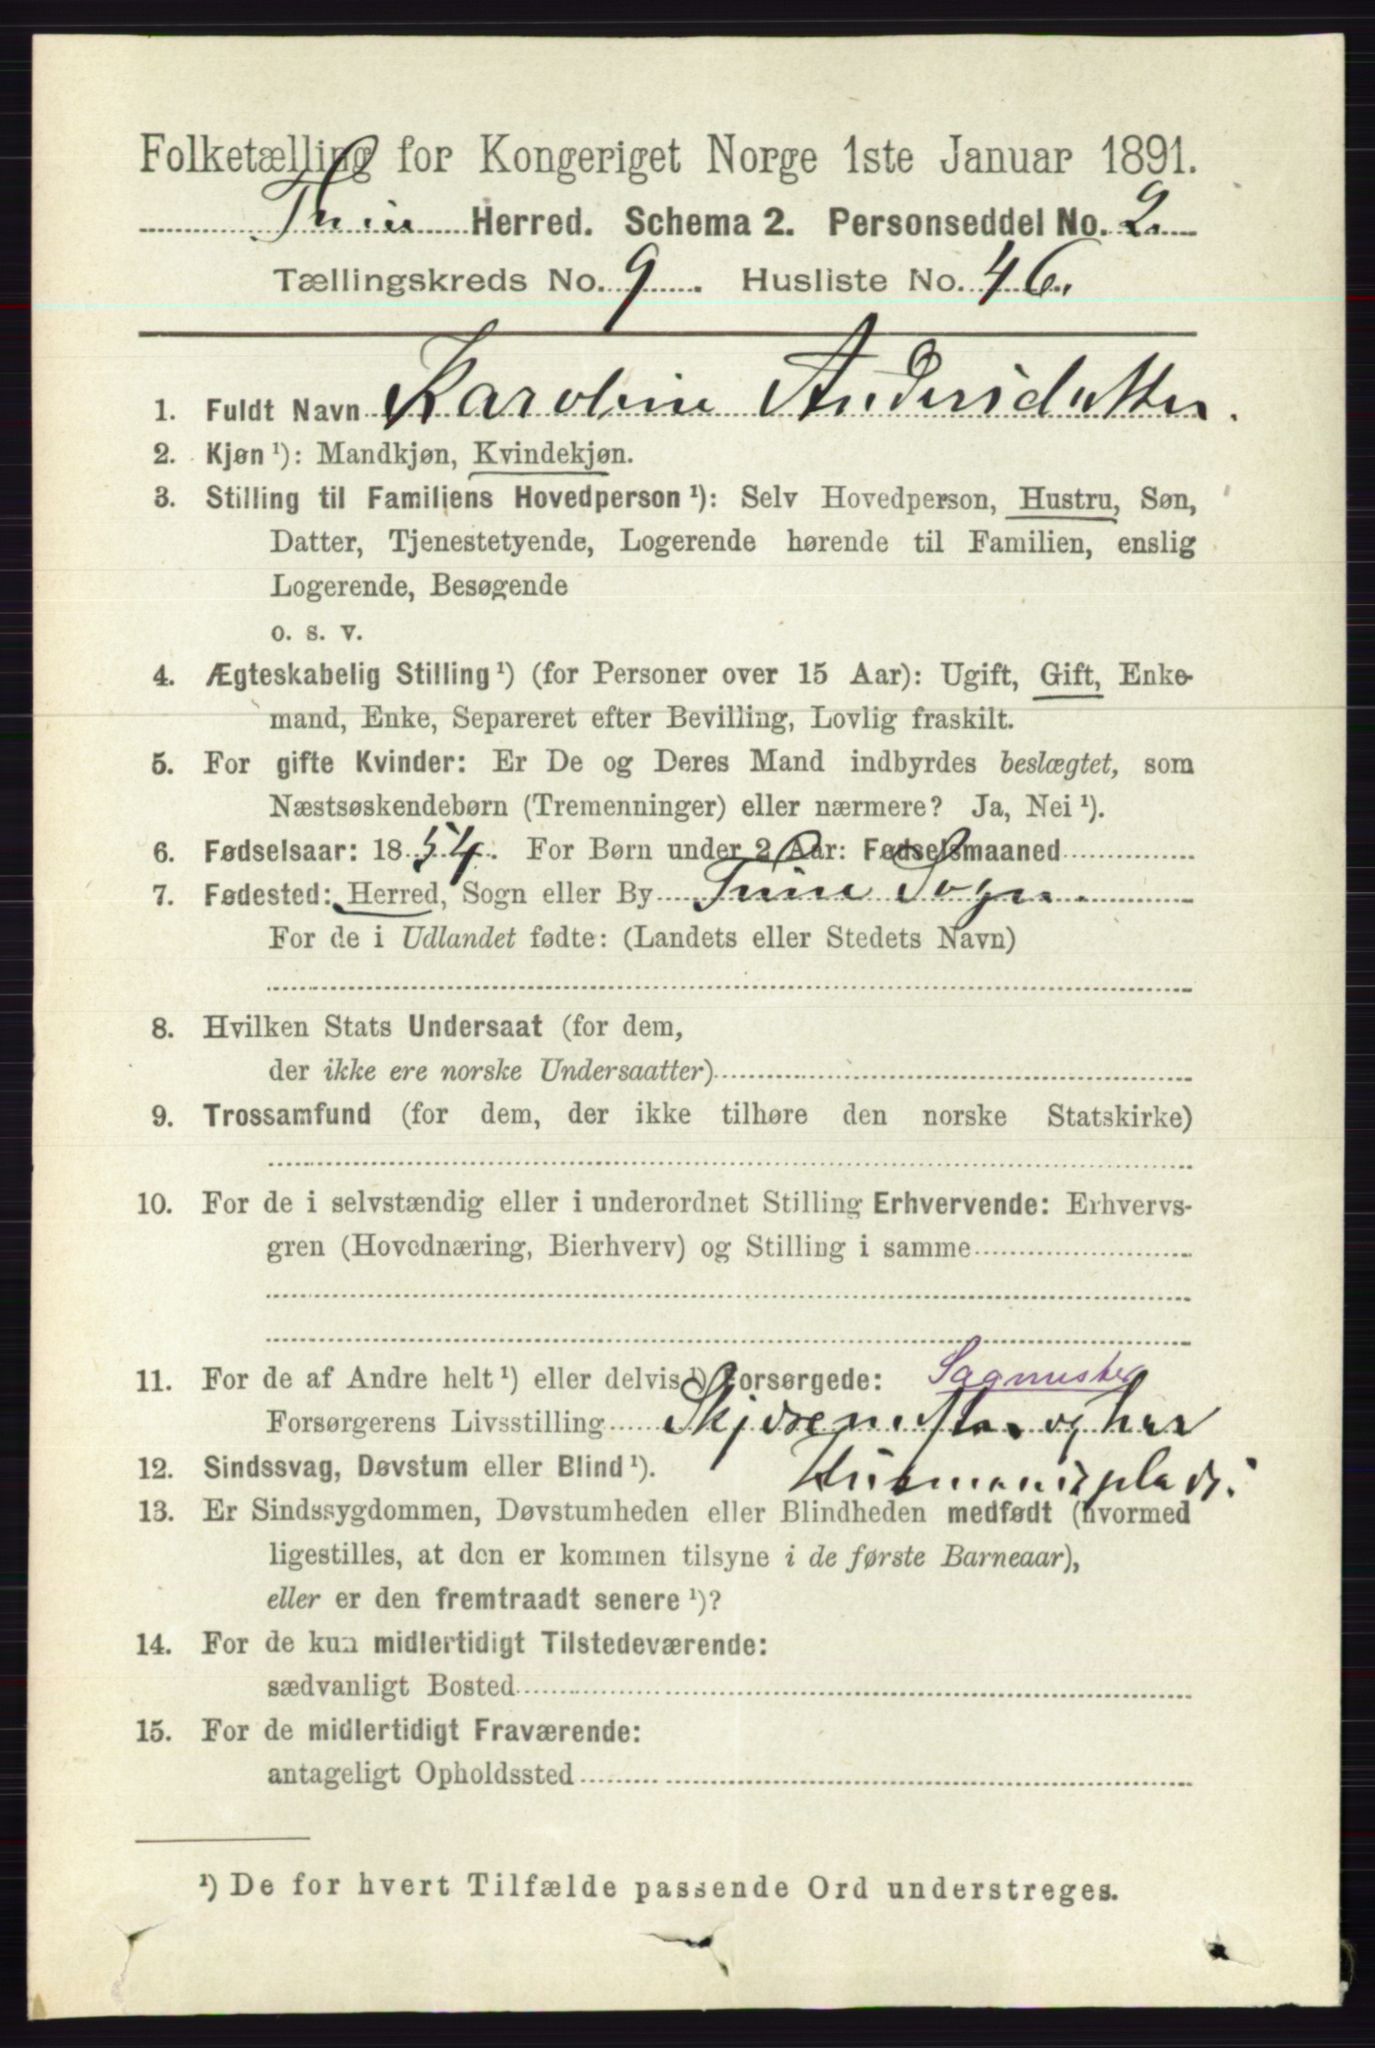 Folketælling for Kongeriget Norge 1ste Januar 1891.
Thune Herred. Schema 2. Personseddel No. 2.
Tællingskreds No. 9. Husliste No. 46.
1. Fuldt Navn Karoline Andersdatter.
2. Kjøn ¹): Mandkjøn, Kvindekjøn.
3. Stilling til Familiens Hovedperson ¹): Selv Hovedperson, Hustru, Søn,
Datter, Tjenestetyende, Logerende hørende til Familien, enslig
Logerende, Besøgende
o. s. v.
4. Ægteskabelig Stilling ¹) (for Personer over 15 Aar): Ugift, Gift, Enke-
mand, Enke, Separeret efter Bevilling, Lovlig fraskilt.
5. For gifte Kvinder: Er De og Deres Mand indbyrdes beslægtet, som
Næstsøskendebørn (Tremenninger) eller nærmere? Ja, Nei ¹).
6. Fødselsaar: 1854. For Børn under 2 Aar: Fødselsmaaned
7. Fødested: Herred, Sogn eller By Tune Sogn.
For de i Udlandet fødte: (Landets eller Stedets Navn)
8. Hvilken Stats Undersaat (for dem,
der ikke ere norske Undersaatter)
9. Trossamfund (for dem, der ikke tilhøre den norske Statskirke)
10. For de i selvstændig eller i underordnet Stilling Erhvervende: Erhvervs-
gren (Hovednæring, Bierhverv) og Stilling i samme
11. For de af Andre helt ¹) eller delvis ¹) Forsørgede: Sagmester
Forsørgerens Livsstilling og har
12. Sindssvag, Døvstum eller Blind ¹). Husmandsplads.
13. Er Sindssygdommen, Døvstumheden eller Blindheden medfødt (hvormed
ligestilles, at den er kommen tilsyne i de første Barneaar),
eller er den fremtraadt senere ¹)?
14. For de kun midlertidigt Tilstedeværende:
sædvanligt Bosted
15. For de midlertidigt Fraværende:
antageligt Opholdssted
¹) De for hvert Tilfælde passende Ord understreges.